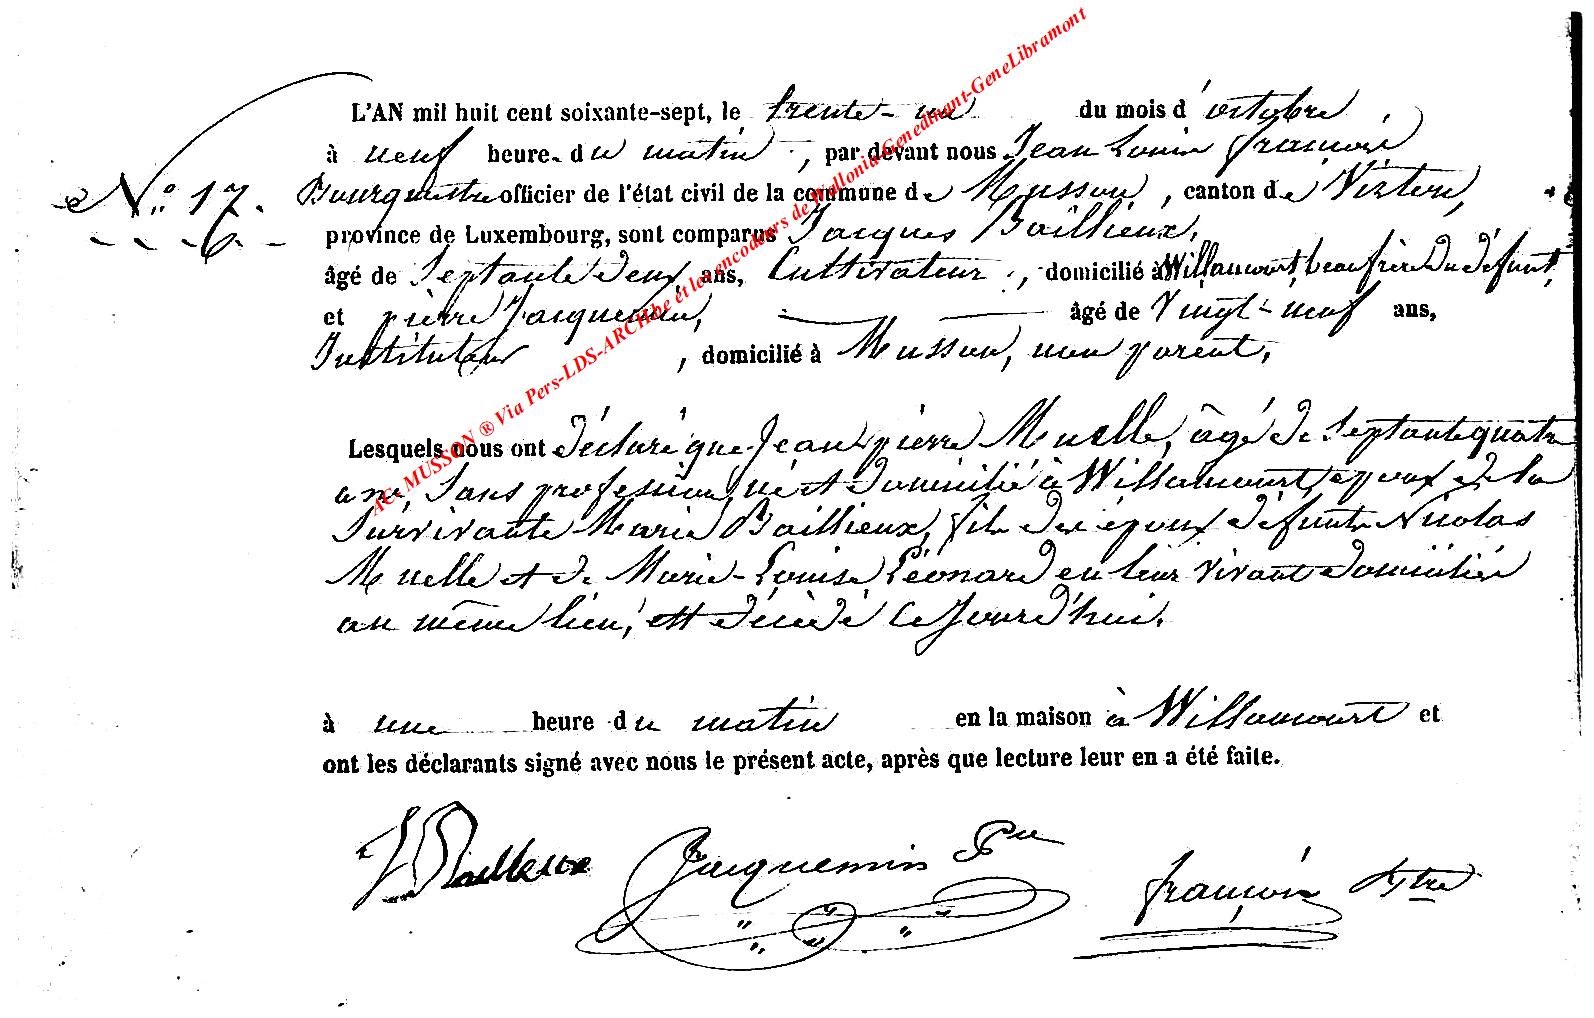 L'AN mil huit cent soixante-sept, le trente-un du mois d'octobre
à neuf heure du matin, par devant nous Jean Louis françois
N.º 17. Bourgmestre officier de l'état civil de la commune de Musson, canton de Virton,
province de Luxembourg, sont comparus Jacques Baillieux,
âgé de Septante deux ans, Cultivateur, domicilié à Willancourt, beau frère du défunt,
et pierre Jacquemin, âgé de Vingt-neuf ans,
Instituteur, domicilié à Musson, non parent,
Lesquels nous ont déclaré que Jean pierre Muelle, âgé de Septante quatre
ans, Sans profession, né et domicilié à Willancourt, époux de la
Survivante Marie Baillieux, fils des époux défunts Nicolas
Muelle et de Marie-Louise Léonard en leur vivant domiciliés
au même lieu, est décédé ce Jourd'hui.
à une heure du matin en la maison à Willancourt et
ont les déclarants signé avec nous le présent acte, après que lecture leur en a été faite.
J Baillieux Jacquemin Pre françois
AC- MUSSON ® Via Pers-LDS-ARCH.be et les encodeurs de Wallonia-Genedinant-GeneLibramont